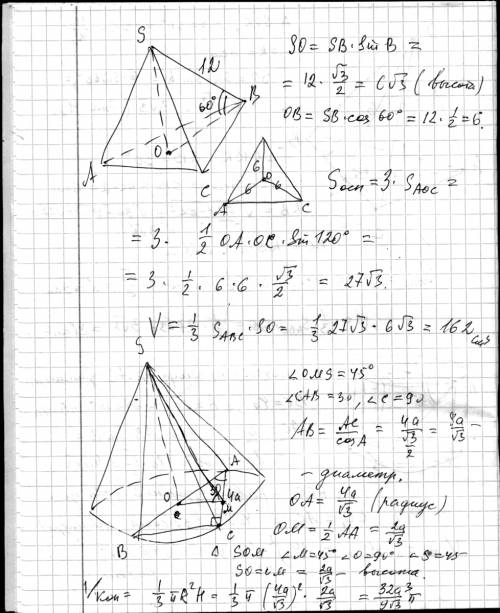 S
12
60°
B
O
A
C
SO = SB · Sin B =
= 12 · √3/2 = 6√3 (высота)
OB = SB · cos 60° = 12 · 1/2 = 6.
6
O
6 6
A C
Sосн = 3 · S_AOC =
= 3 · 1/2 OA · OC · Sin 120° =
= 3 · 1/2 · 6 · 6 · √3/2 = 27√3.
V = 1/3 S_ABC · SO = 1/3 27√3 · 6√3 = 162 см³
S
A
30
4a
O
M
B
C
∠OMS = 45°
∠CAB = 30, ∠C = 90
AB = AC/cosA = 4a/(√3/2) = 8a/√3 –
– диаметр.
OA = 4a/√3 (радиус)
OM = 1/2 AA = 2a/√3
Δ SOM ∠M=45° ∠O=90° ∠S=45
SO=OM = 2a/√3 – высота.
Vкон = 1/3 πR²H = 1/3 π (4a/√3)² · 2a/√3 = 32a³/9√3 π